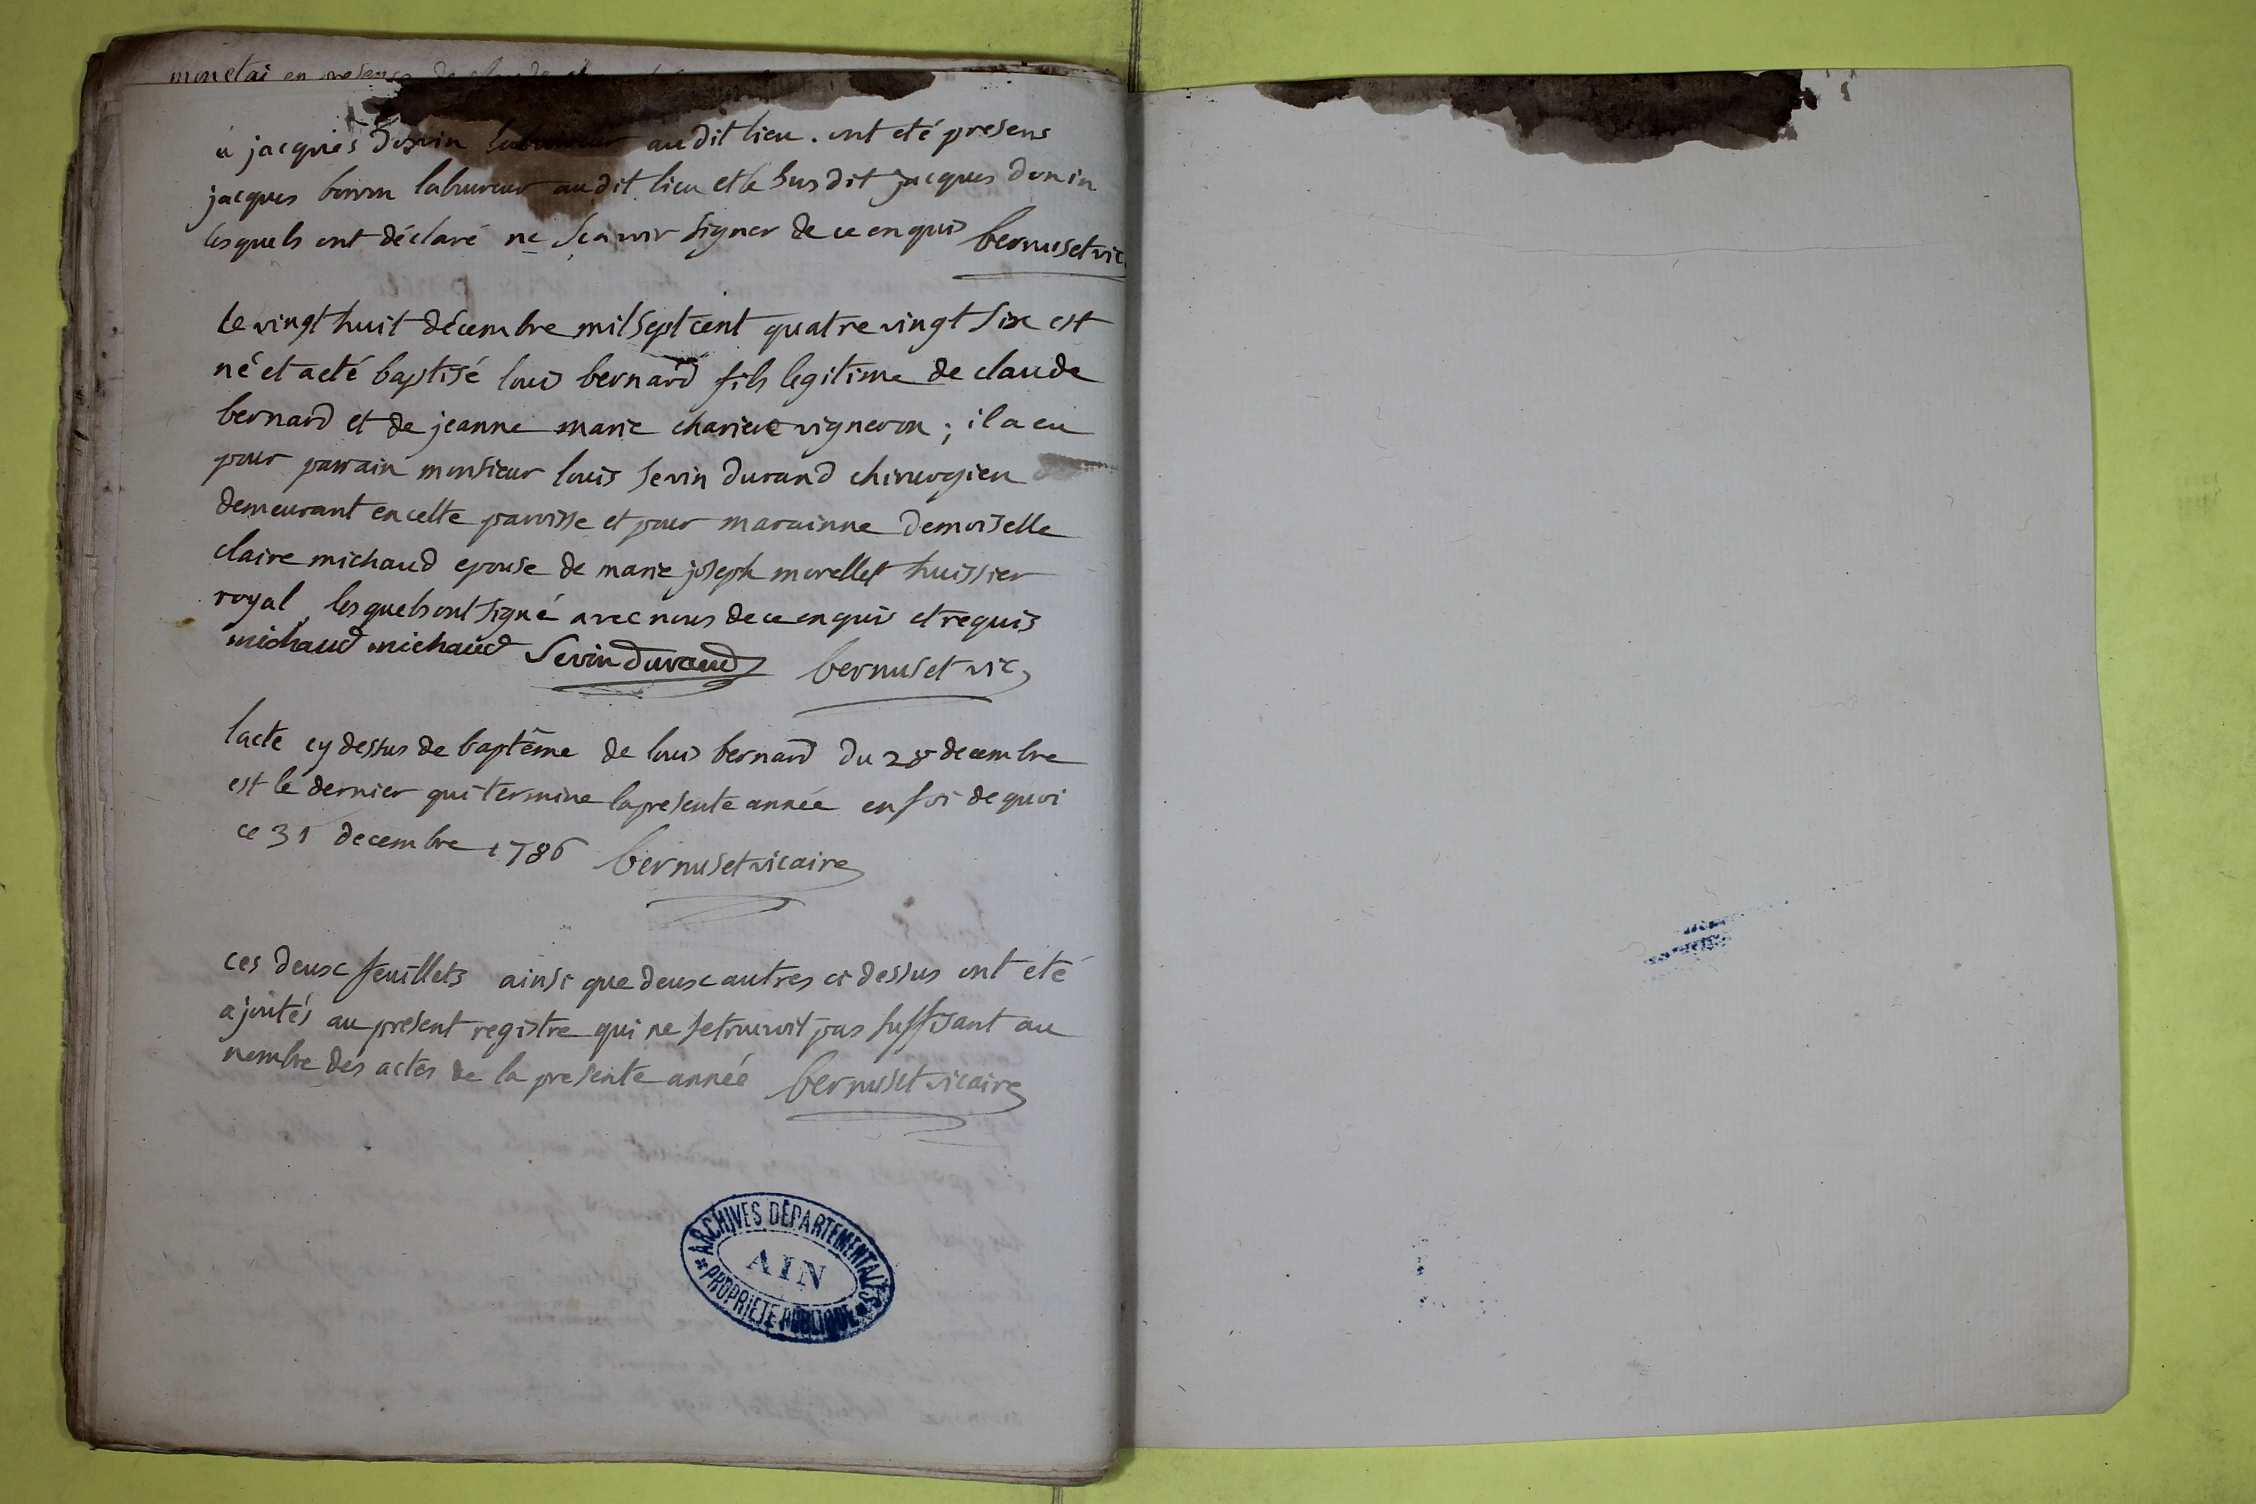 monetai en presence de
a jacques donin laboureur au dit lieu. ont eté presens
jacques bovon laboureur au dit lieu et le sus dit jacques donin
lesquels ont déclaré ne sçavoir signer de ce enquis bernuset vic
le vingt huit décembre mil sept cent quatre vingt six est
né et a eté baptisé louis bernard fils legitime de claude
bernard et de jeanne marie vigneron ; il a eu
pour parrain monsieur louis sevin durand chirurgien
demeurant en cette paroisse et pour marainne demoiselle
claire michaud epouse de marie joseph morellet huissier
royal lesquels ont signé avec nous de ce enquis et requis
michaud michaud Sevin durand bernuset vic
lacte cy dessus de baptême de louis bernard du 28 decembre
est le dernier qui termine la presente année en foi de quoi
ce 31 decembre 1786 bernuset vicaire
ces deux feuillets ainsi que deux autres ci dessus ont eté
ajoutés au present registre qui ne se trouvoit pas suffisant au
nombre des actes de la presente année bernuset vicaire
ARCHIVES DÉPARTEMENTALES
AIN
* PROPRIETE PUBLIQUE *